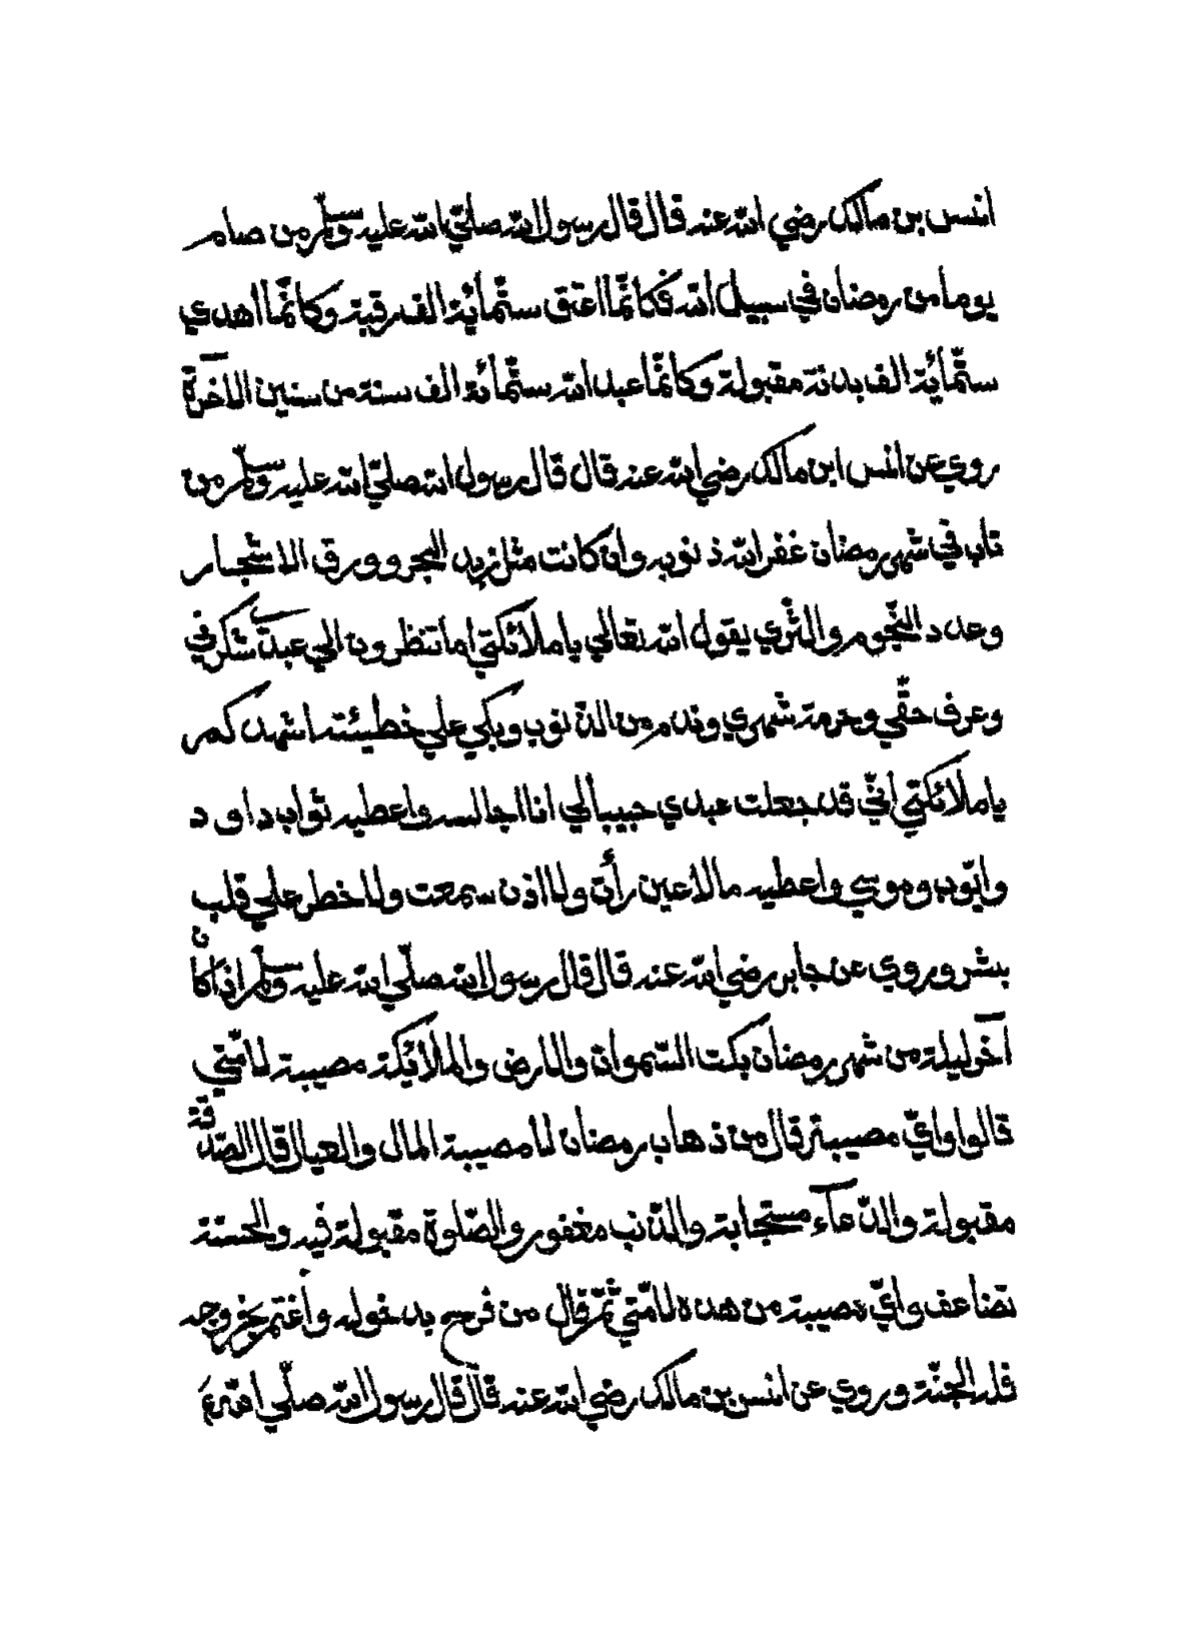 انس بن مالك رضي الله عنه قال قال رسول الله صلّي الله عليه وسلّم من صام
يوما من رمضان في سبيل الله فكانّما اعتق ستّمأية الف رقبة وكانّما اهدي
ستّمأية الف بدنة مقبولة وكانّما عبد الله ستّمأية الف سنة من سنين الاخرة
روي عن انس ابن مالك رضي الله عنه قال قال رسول الله صلّي الله عليه وسلّم من
تاب في شهر رمضان غفر الله ذنوبه وان كانت مثل زبد البحر وورق الاشجار
وعدد النّجوم والثّري يقول الله تعالي يا ملائكتي اما تنظرون الي عبدي شكرني
وعرف حقّي وحرمة شهري وندم من الذنوب وبكي علي خطيئته اشهدكم
يا ملائكتي انّي قد جعلت عبدي حبيبا لي انا اجالسه واعطيه ثواب داود
وايّوب وموسي واعطيه ما لا عين رأت ولا اذن سمعت ولا خطر علي قلب
بشر وروي عن جابر رضي الله عنه قال قال رسول الله صلّي الله عليه وسلّم اذا كان
آخر ليلة من شهر رمضان بكت السّموات والارض والملائيكة مصيبة لامّتي
قالوا وايّ مصيبة قال من ذهاب رمضان لا مصيبة المال والعيال قال الصّدقة
مقبولة والدّعآء مستجابة والذّنب مغفور والصّلوة مقبولة فيه والحسنة
تضاعف وايّ مصيبة من هذه لامّتي ثمّ قال من فرح بدخوله واغتم بخروجه
فله الجنّة وروي عن انس بن مالك رضي الله عنه قال قال رسول الله صلّي الله